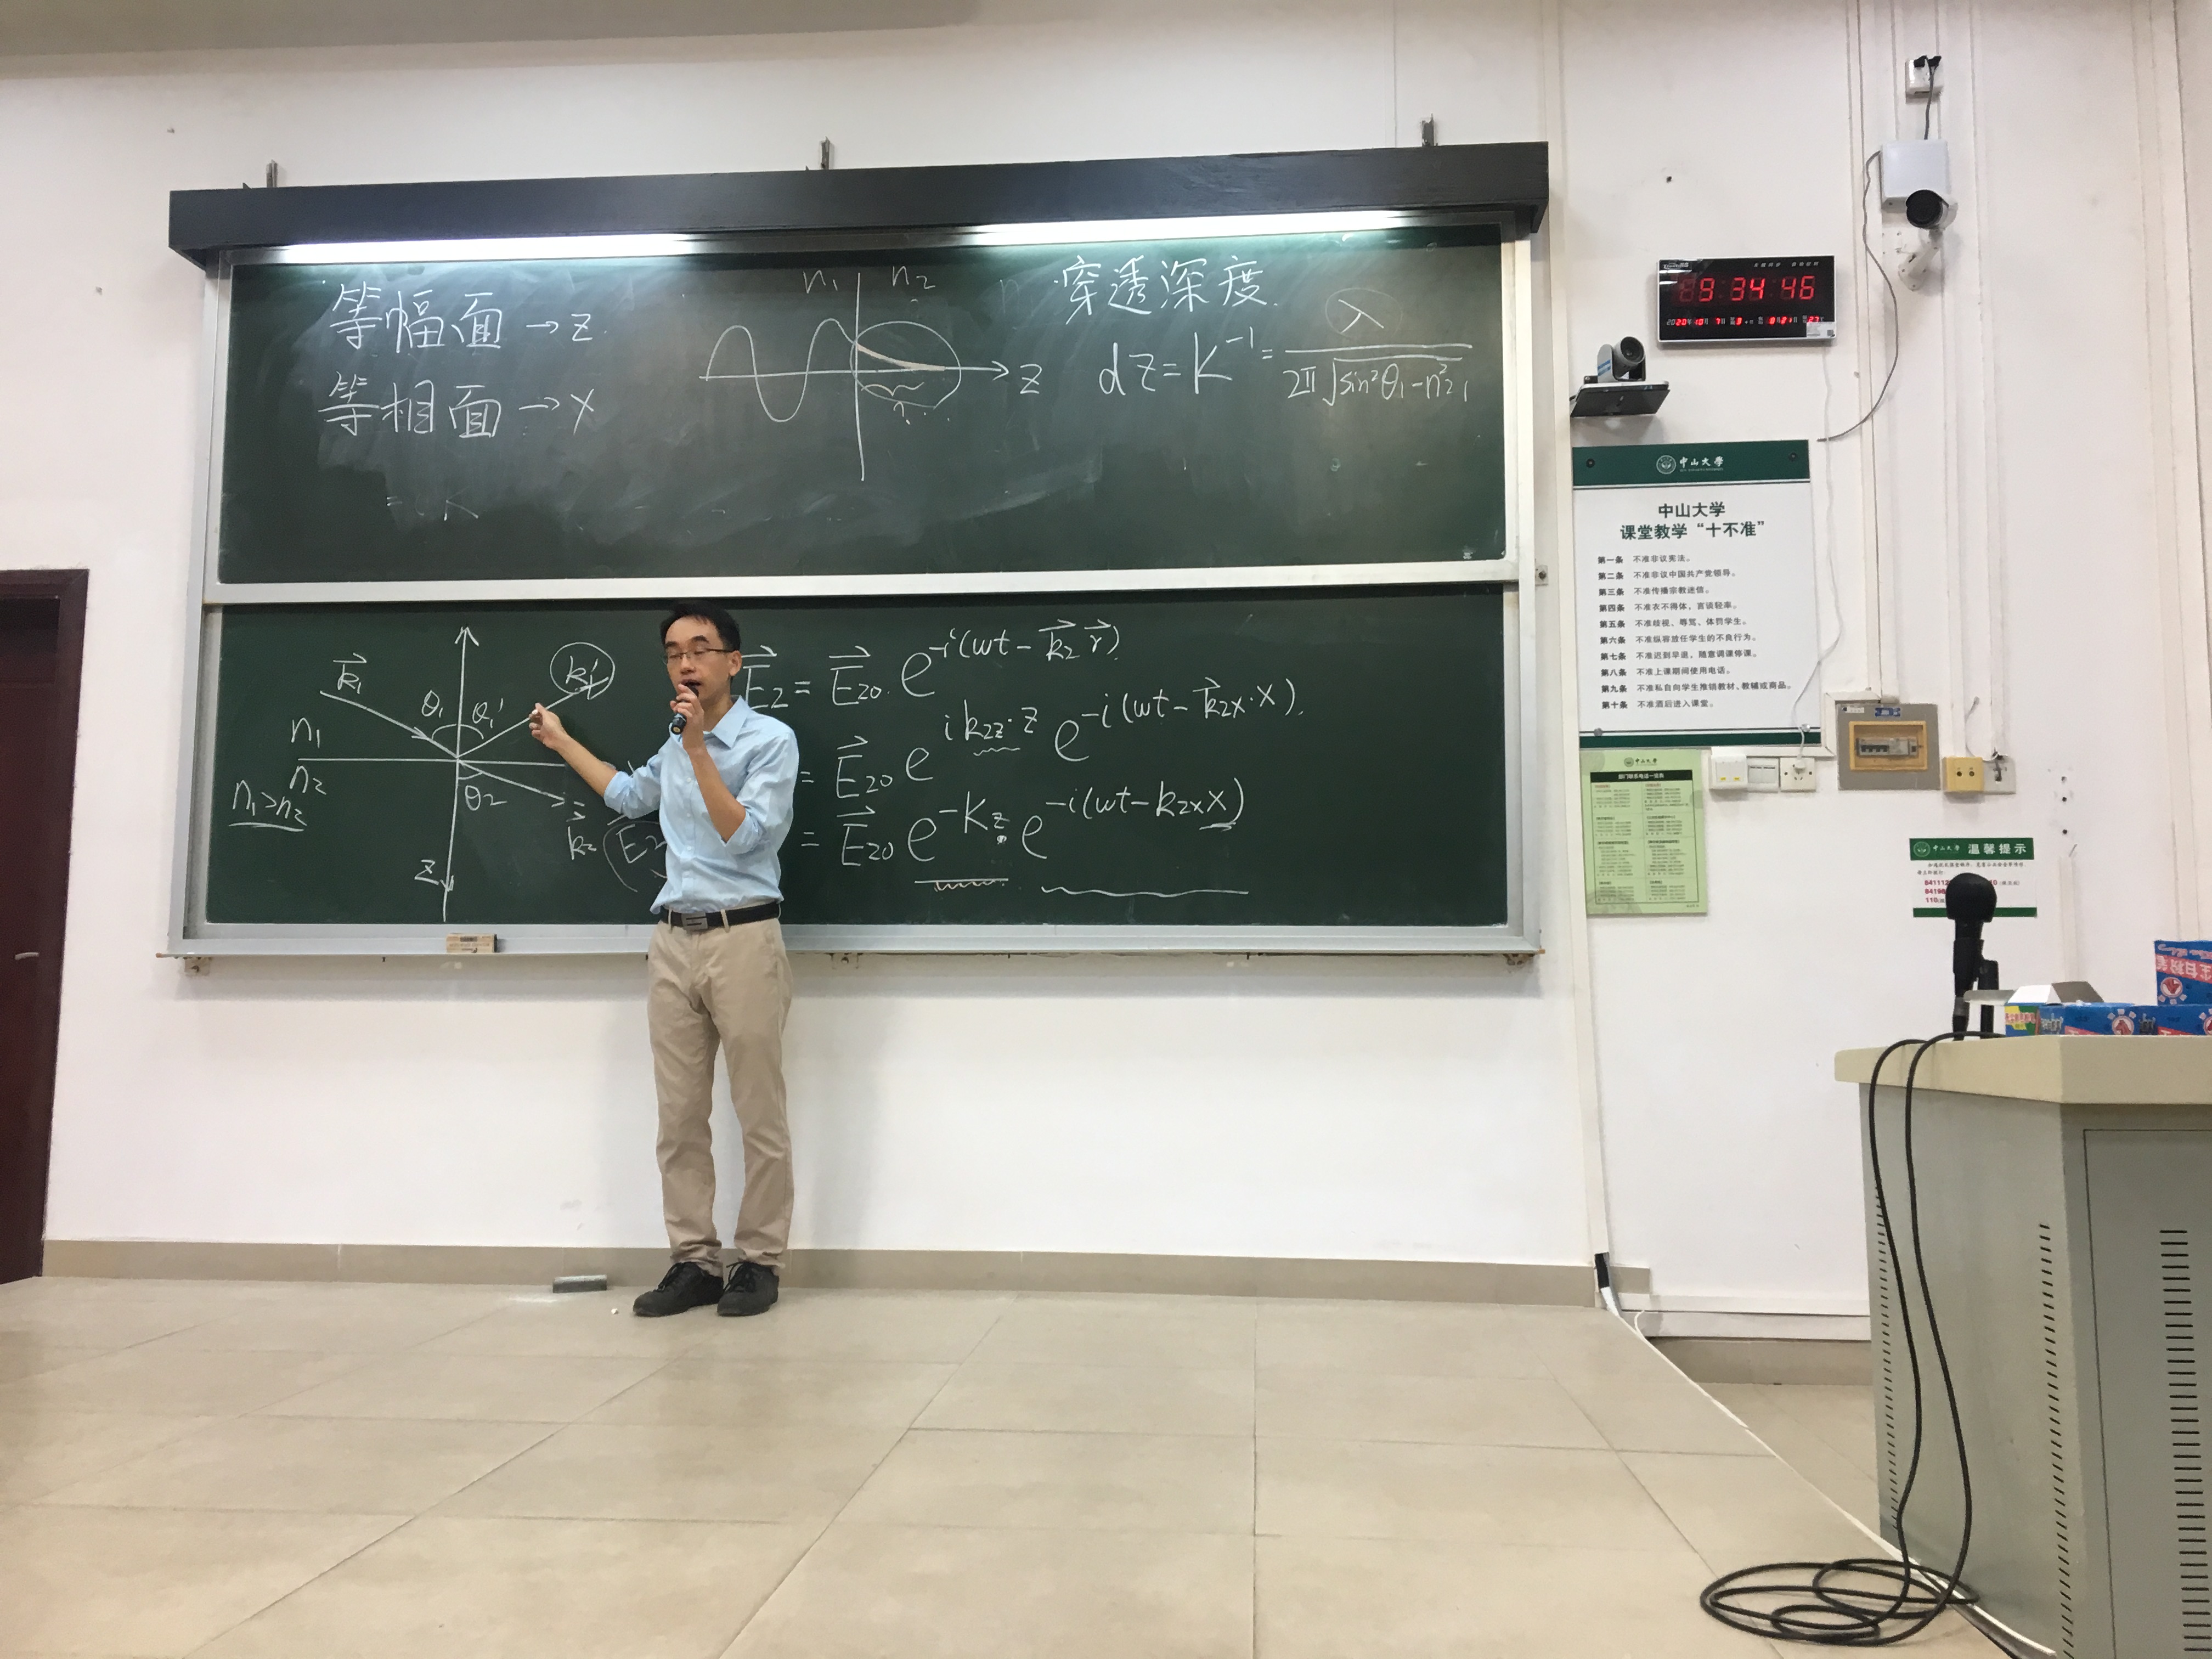 等幅面→z
等相面→x
n₁ n₂
z
穿透深度
dz=K⁻¹=λ/(2π√(sin²θ₁-n²₂₁))
= K
k⃗₁ θ₁ θ₁' k₁'
n₁
n₂
n₁>n₂
θ₂
k⃗₂
z
E⃗₂=E⃗₂₀ e^{-i(wt-k⃗₂r⃗)}
=E⃗₂₀ e^{ik₂z·z} e^{-i(wt-k⃗₂x·x)}
=E⃗₂₀ e^{-Kz} e^{-i(wt-k₂xx)}
9 34 46
中山大學
中山大学
课堂教学“十不准”
第一条 不准非议宪法。
第二条 不准非议中国共产党领导。
第三条 不准传播宗教迷信。
第四条 不准衣不得体，言谈轻率。
第五条 不准歧视、辱骂、体罚学生。
第六条 不准纵容放任学生的不良行为。
第七条 不准迟到早退，随意调课停课。
第八条 不准上课期间使用电话。
第九条 不准私自向学生推销教材、教辅或商品。
第十条 不准酒后进入课堂。
中山大學
中山大學 温馨提示
110